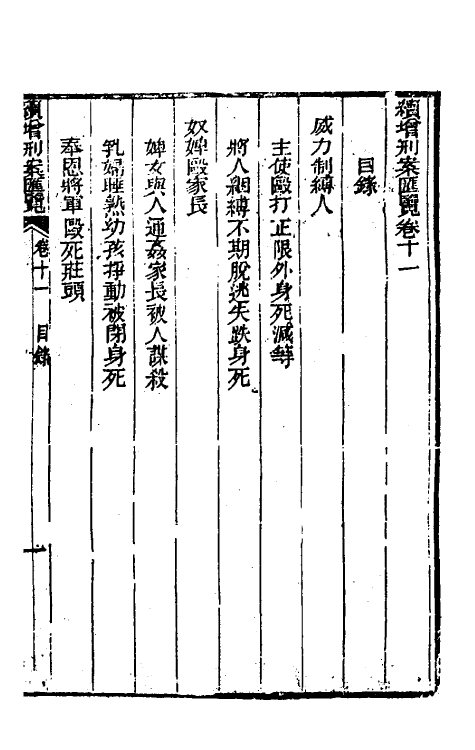 續增刑案匯覽卷十一
目錄
威力制縛人
主使毆打正限外身死減等
將人綑縛不期脫逃失跌身死
奴婢毆家長
婢女與人通姦家長被人謀殺
乳婦睡熟幼孩掙動被閉身死
奉恩將軍毆死莊頭
續增刑案匯覽 卷十一 目錄 一